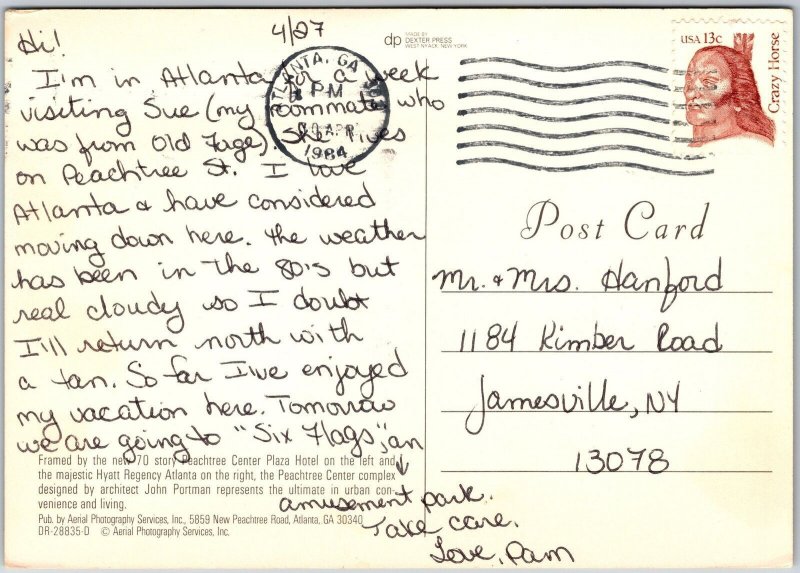 4/27
Hi!
I'm in Atlanta for a week
visiting Sue (my roommate who
was from Old Forge). She lives
on Peachtree St. I love
Atlanta & have considered
moving down here. The weather
has been in the 80's but
real cloudy so I doubt
I'll return north with
a tan. So far I've enjoyed
my vacation here. Tomorrow
we are going to "Six Flags", an
amusement park.
Take care.
Love, Pam
Framed by the new 70 story Peachtree Center Plaza Hotel on the left and
the majestic Hyatt Regency Atlanta on the right, the Peachtree Center complex
designed by architect John Portman represents the ultimate in urban con-
venience and living.
Pub. by Aerial Photography Services, Inc., 5859 New Peachtree Road, Atlanta, GA 30340
DR-28835-D © Aerial Photography Services, Inc.
dp
MADE BY
DEXTER PRESS
WEST NYACK, NEW YORK
ATLANTA, GA
PM
APR
1984
USA 13c
Crazy Horse
Post Card
Mr. & Mrs. Hanford
1184 Kimber Road
Jamesville, NY
13078